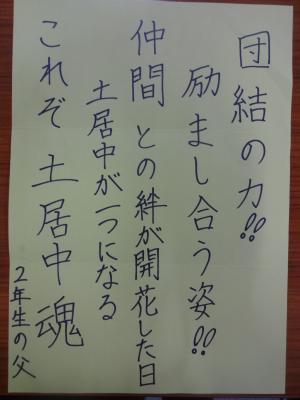 団結の力!!
励まし合う姿!!
仲間との絆が開花した日
土居中が一つになる
これぞ土居中魂
2年生の父